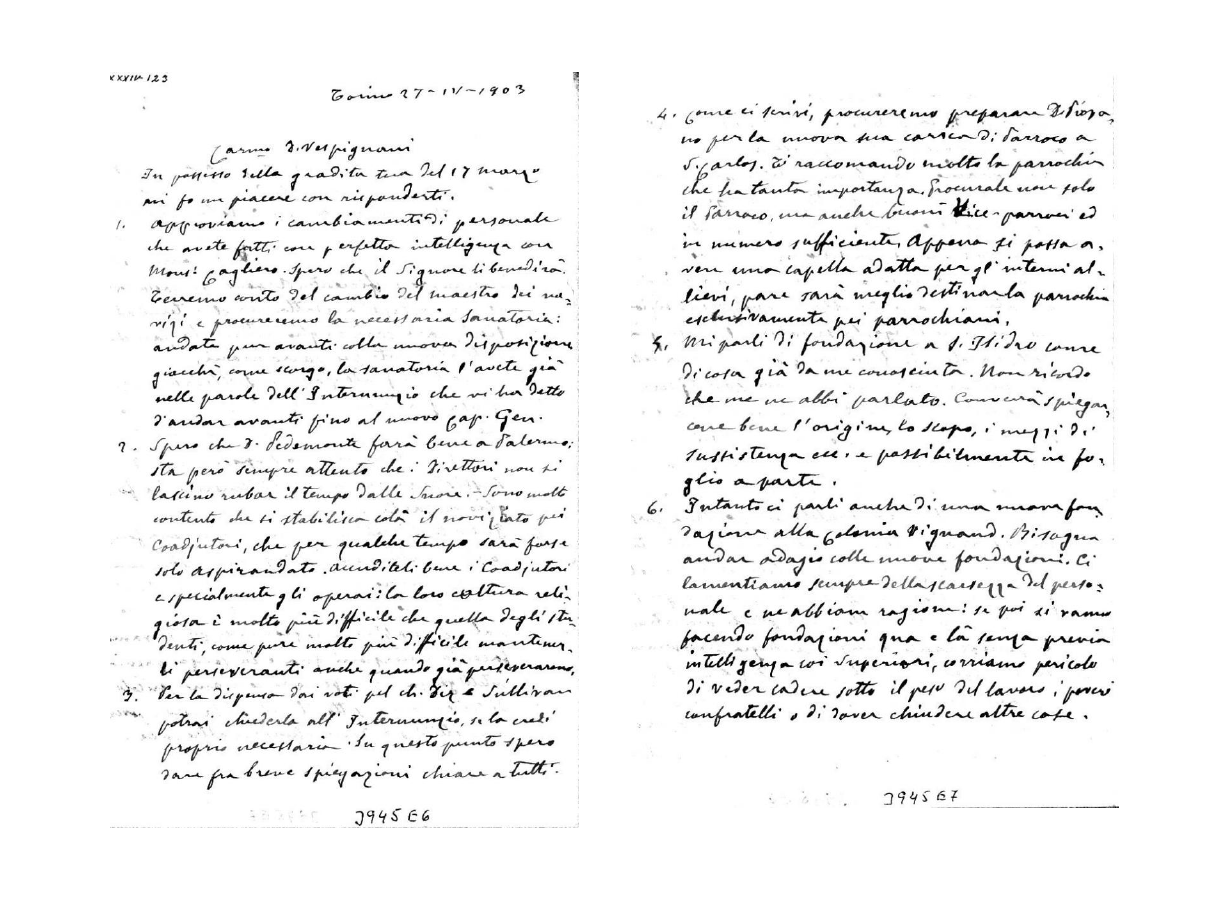 XXXIV-123
Torino 27-IV-1903
Carmo D. Vespignani
In possesso della gradita tua del 17 marzo
mi fo un piacere con risponderti.
1. Approviamo i cambiamenti di personale
che avete fatti con perfetta intelligenza con
Monsr Cagliero. Spero che il Signore li benedirà.
Terremo conto del cambio del maestro dei no-
vizi e procureremo la necessaria Sanatoria:
andate pur avanti colla nuova disposizione
giacchè, come scorgo, la sanatoria l'avete già
nelle parole dell'Internunzio che vi ha detto
d'andar avanti fino al nuovo Cap. Gen.
2. Spero che D. Pedemonte farrà bene a Palermo;
sta però sempre attento che i Direttori non si
lascino rubar il tempo dalle Suore. - Sono molto
contento che si stabilisca colà il noviziato pei
Coadjutori, che per qualche tempo sarà forse
solo Aspirandato. Accuditeli bene i Coadjutori
e specialmente gli operai: la loro coltura reli-
giosa è molto più difficile che quella degli stu-
denti, come pure molto più difficile mantener-
li perseveranti anche quando già perseverarono.
3. Per la dispensa dai voti pel ch. Diz e Sullivan
potrai chiederla all'Internunzio, se la credi
proprio necessaria. Su questo punto spero
dare fra breve spiegazioni chiare a tutti.
3945 E6
4. Come ci scrivi, procureremo preparare D.
no per la nuova sua carica di Parroco a
S. Carlos. Ti raccomando molto la parrochia
che ha tanta importanza. Procurale non solo
il Parroco, ma anche buoni Vice-parroci ed
in numero sufficiente. Appena si possa a-
vere una capella adatta per gl'interni al-
lievi, pare sarà meglio destinar la parrochia
esclusivamente pei parrochiani.
5. Mi parli di fondazione a S. Isidro come
di cosa già da me conosciuta. Non ricordo
che me ne abbi parlato. Converrà spiegar-
cene bene l'origine, lo scopo, i mezzi di
sussistenza ecc. e possibilmente in fo-
glio a parte.
6. Intanto ci parli anche di una nuova fon
dazione alla Colonia Vignaud. Bisogna
andar adagio colle nuove fondazioni. Ci
lamentiamo sempre della scarsezza del perso-
nale e ne abbiam ragione: se poi si vanno
facendo fondazioni qua e là senza previa
intelligenza coi Superiori, corriamo pericolo
di veder cadere sotto il peso del lavoro i poveri
confratelli o di dover chiudere altre case.
3945 E7